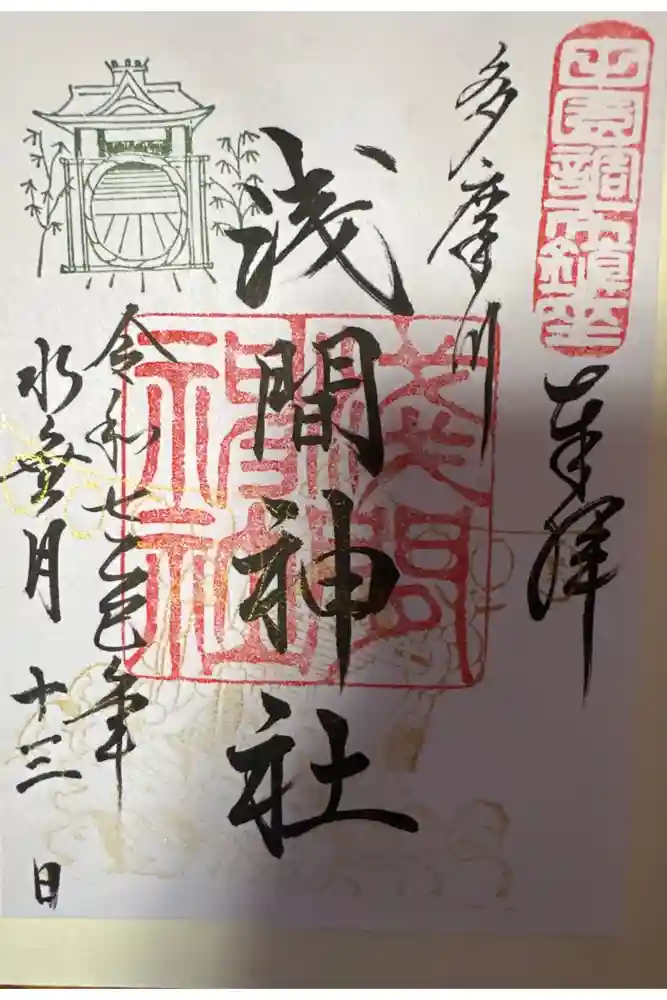 田園調布鎮座
奉拝
多摩川
浅間神社
浅間神社
令和七乙巳年
水無月十三日